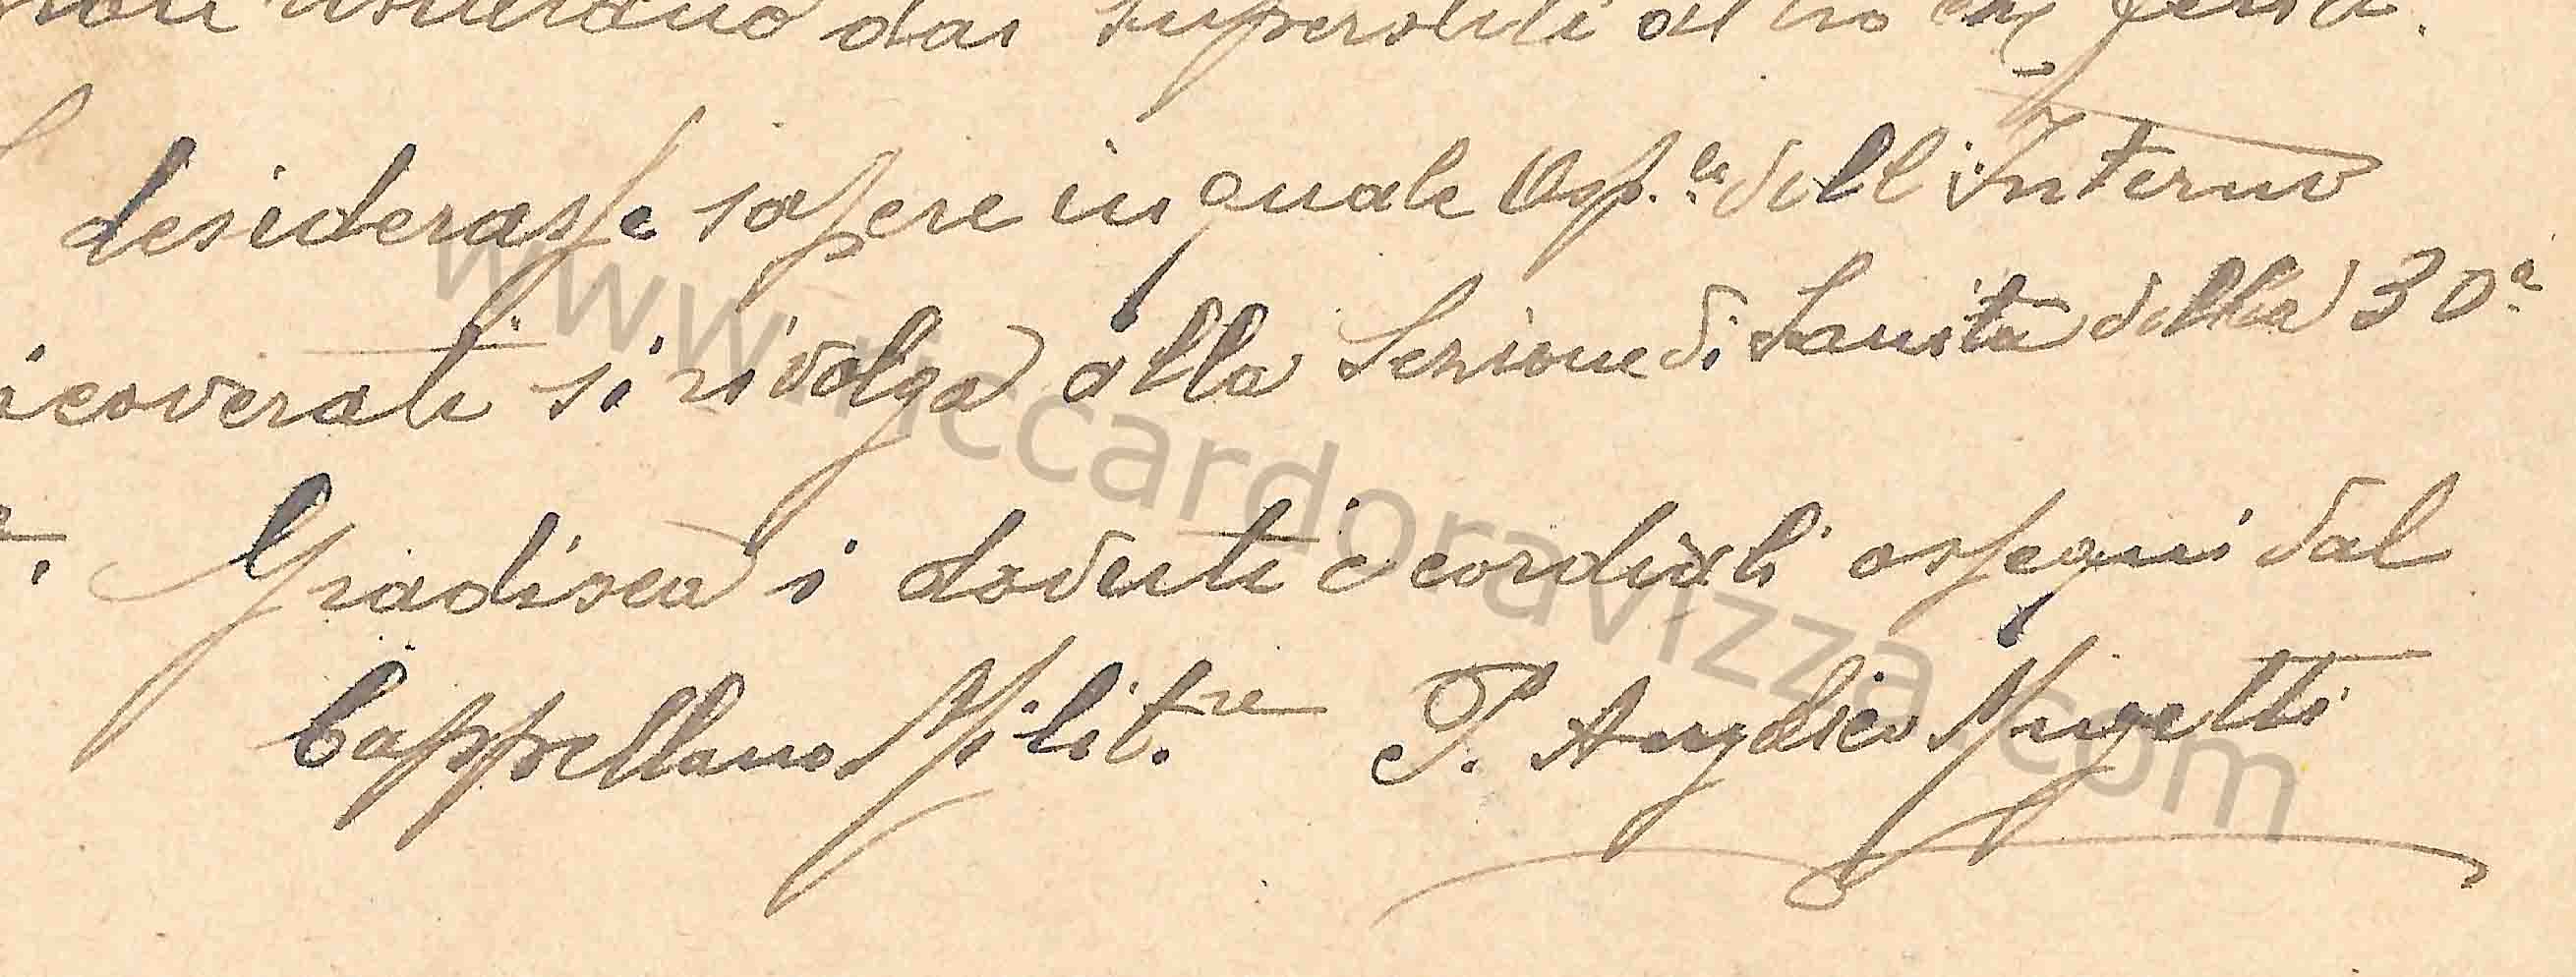 dai superstiti altro che
desiderasse sapere in quale Osp.le dell'Interno
icoverati si rivolga alla Sezione di Sanità della 30a
Gradisca i doverti e cordiali ossequi dal
Cappellano Milit.re P. Angelico Mugetti
www.riccardoravizza.com